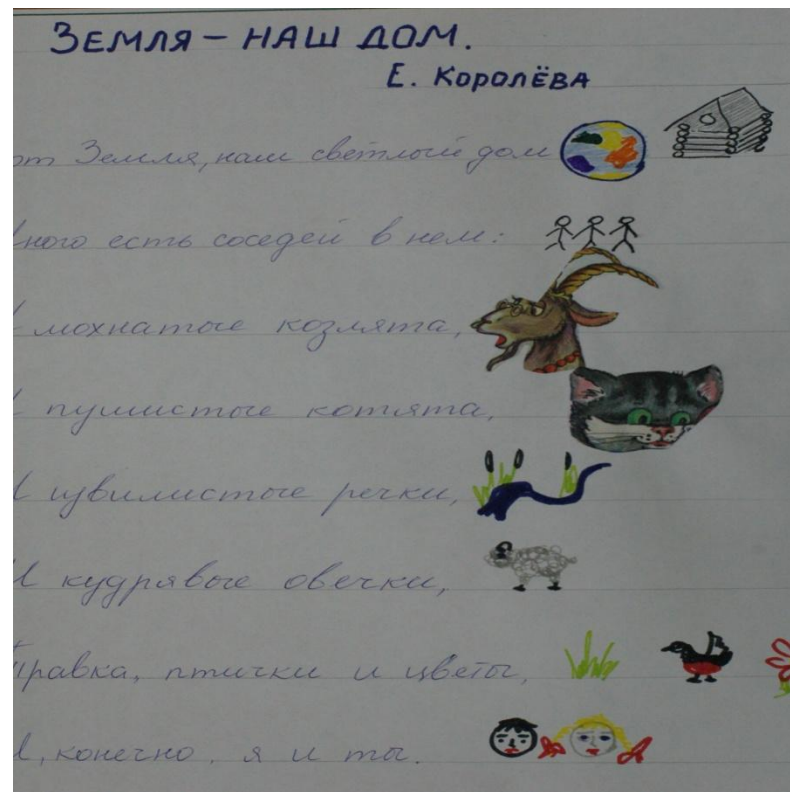 ЗЕМЛЯ – НАШ ДОМ.
Е. КОРОЛЁВА
от Земля, наш светлый дом
ного есть соседей в нем:
И мохнатые козлята,
И пушистые котята,
И извилистые речки,
И кудрявые овечки,
Травка, птички и цветы,
И, конечно, я и ты.